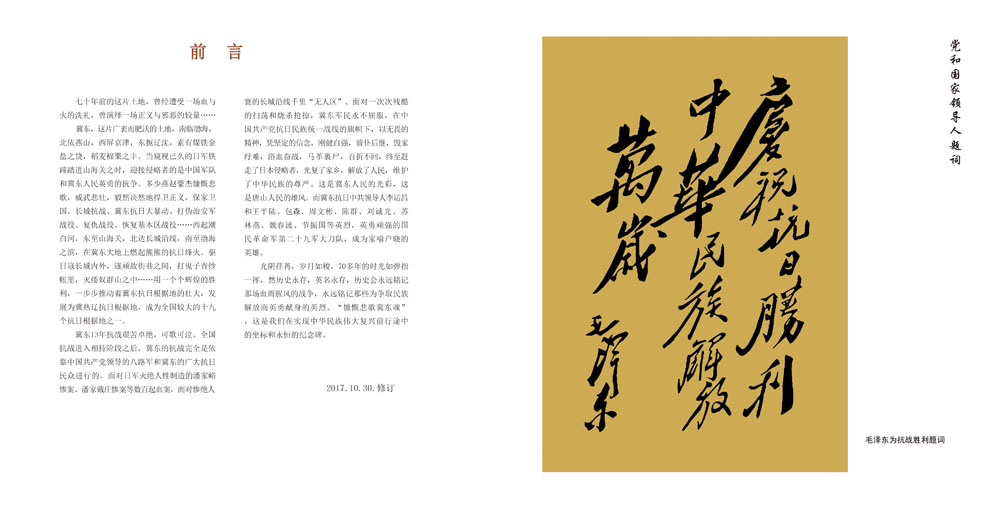 前 言
七十年前的这片土地，曾经遭受一场血与
火的洗礼，曾演绎一场正义与邪恶的较量……
冀东，这片广袤而肥沃的土地，南临渤海，
北依燕山，西屏京津，东振辽沈，素有煤铁金
盐之饶，稻麦棉果之丰。当窥视已久的日军铁
蹄踏进山海关之时，迎接侵略者的是中国军队
和冀东人民英勇的抗争。多少燕赵豪杰慷慨悲
歌，威武悲壮，毅然决然地捍卫正义，保家卫
国。长城抗战、冀东抗日大暴动、打伪治安军
战役、复仇战役、恢复基本区战役……西起潮
白河，东至山海关，北达长城沿线，南至渤海
之滨，在冀东大地上燃起熊熊的抗日烽火。驱
日寇长城内外，逐顽敌街巷之间，打鬼子青纱
帐里，灭倭奴群山之中……用一个个辉煌的胜
利，一步步推动着冀东抗日根据地的壮大，发
展为冀热辽抗日根据地，成为全国较大的十九
个抗日根据地之一。
冀东13年抗战艰苦卓绝，可歌可泣。全国
抗战进入相持阶段之后，冀东的抗战完全是依
靠中国共产党领导的八路军和冀东的广大抗日
民众进行的。面对日军灭绝人性制造的潘家峪
惨案、潘家戴庄惨案等数百起血案，面对惨绝人
寰的长城沿线千里“无人区”、面对一次次残酷
的扫荡和烧杀抢掠，冀东军民永不屈服。在中
国共产党抗日民族统一战线的旗帜下，以无畏的
精神，凭坚定的信念，刚健自强，前仆后继，毁家
纾难，浴血奋战，马革裹尸，百折不回，终至赶
走了日本侵略者，光复了家乡，解放了人民，维护
了中华民族的尊严。这是冀东人民的光彩，这
是唐山人民的雄风。而冀东抗日中共领导人李运昌
和王平陆、包森、周文彬、陈群、刘诚光、苏
林燕、魏春波、节振国等英烈，英勇顽强的国
民革命军第二十九军大刀队，成为家喻户晓的
英雄。
光阴荏苒，岁月如梭，70多年的时光如弹指
一挥，然历史永存，英名永存，历史会永远铭记
那场血雨腥风的战争，永远铭记那些为争取民族
解放而英勇献身的英烈。“慷慨悲歌冀东魂”
，这是我们在实现中华民族伟大复兴前行途中
的坐标和永恒的纪念碑。
2017.10.30.修订
党和国家领导人题词
慶祝抗日勝利
中華民族解放
萬歲
毛澤东
毛泽东为抗战胜利题词